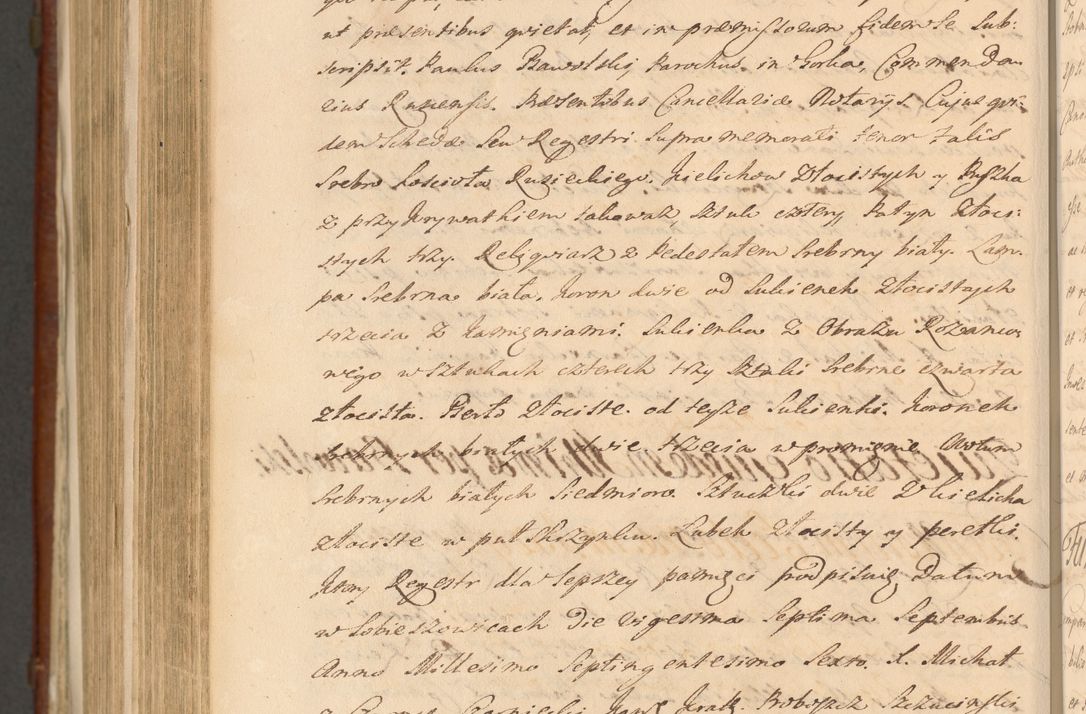 ut præsentibus quietat, et in præmissorum fidem se sub:
scripsit. Paulus Rawolskj Parochus in Gorka, Commenda
rius Ruziensis. Præsentibus Cancellariæ Notarijs. Cujus qvi:
dem Scheda seu Regestri supra memorati tenor talis
Srebro Kosciola Ruzieckiego. Kielichow Złocistych y Puszka
z przykrywadkiem takowasz sztuk cztery Patyn Złoci:
stych trzy. Reliqwiasz z Pedestałem srebrny biały. Lam:
pa srebrna biała, Koron dwie od Sukienek Złocistych
trzecia z kamięniami. Sukienka z Obrazu Rozanco:
wego w sztukach czterech trzy sztuki srebrne czwarta
złocista. Berło złociste. od teysze Sukienki. Koronek
srebrnych białych dwie trzecia w promienie Wotum
Srebrnych białych siedmioro. Sztuczki dwie z kielicha
złociste w pułskrzynku. Kubek złocisty y perełki.
Ktory Regestr dla lepszey pamięci podpisuię Datum
w Sobieszowicach Die vigesima septima Septembris
Anno Millesimo Septingentesimo Sexto. X. Michał